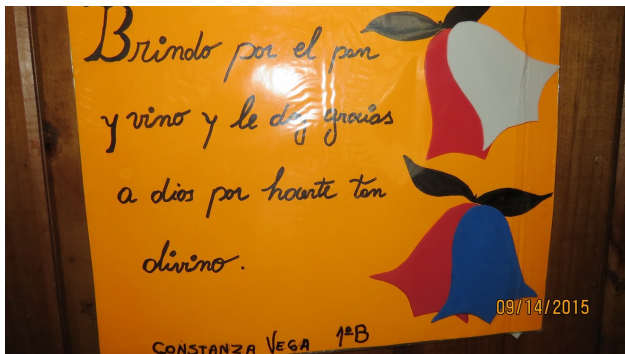 Brindo por el pan
y vino y le doy gracias
a dios por hacerte tan
divino.
CONSTANZA VEGA 1ºB
09/14/2015